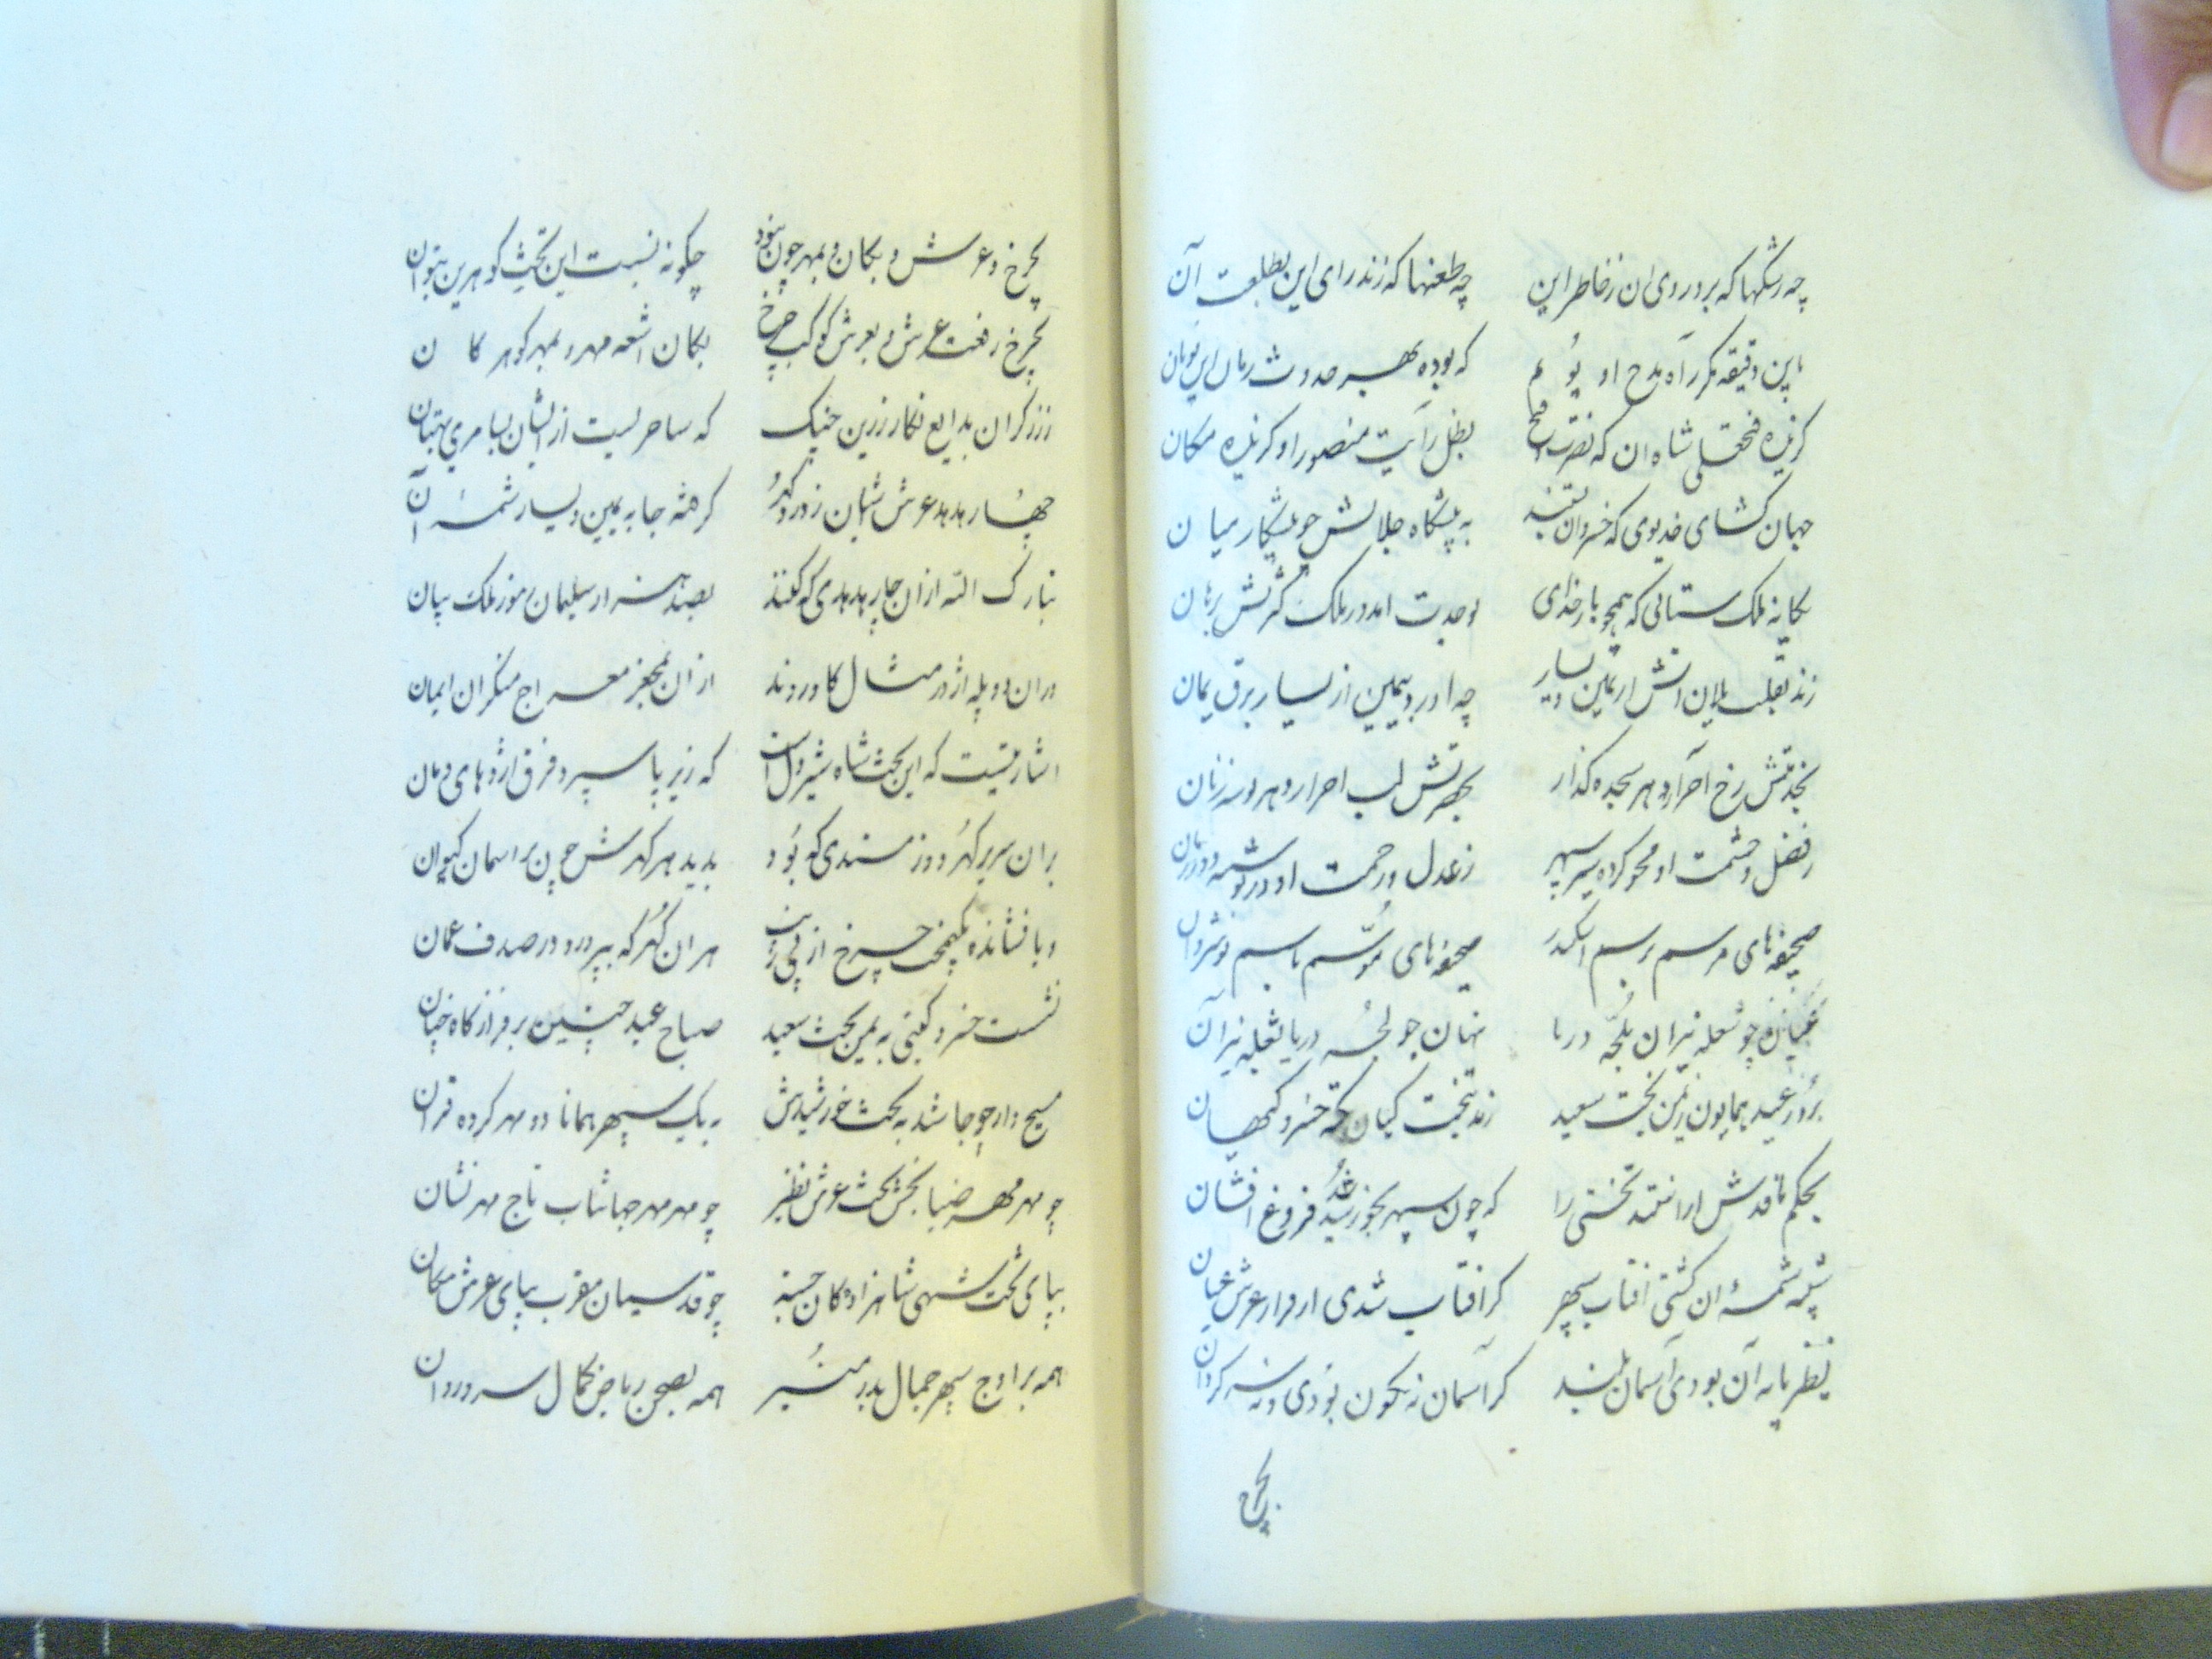 چه رشکها که برد روی ان ز خاطر این چه طعنها که زند رای این بطلعت آن
باین دقیقه مکرر آه مدح او پویم که بوده بهر حدوث زمان این
گزیده فتحعلی شاه ان که نصرت و فتح بظل رآیت منصور او گزیده مکان
جهان گشای خدیوی که خسروان بسته به پیشگاه جلالش چو پیشکار میان
یگانه ملک ستانی که همچو بار خدای بوحدت امد در ملک
زند بقلب یلان اتش از یمین و یسار چه اورد بیمین از یسار برق یمان
بخدمتش رخ احرار دهر سجده گذار بحضرتش لب احرار دهر بوسه زنان
ز فضل و حشمت او محو کرده پیر سپهر ز عدل و رحمت او در نوشته دور زمان
صحیفه های مرسم برسم اسکندر صحیفه های موسم باسم نوشروان
چو شعله نیران بلجّه دریا نهان چو لجّه دریا بشعله نیران
بروز عید همایون ز یمن بخت سعید زند بتخت کیان تکیه خسرو کیهان
بحکم نافذش اراستند تختی را که چون سپهر بخورشید شد فروغ افشان
شبیه شمسهٔ ان گشتی افتاب سپهر گر افتاب شدی از فراز عرش عیان
نظیر پایه آن بودی آسمان بلند گر آسمان نه نگون بودی و نه سرگردان
بچرخ
بچرخ و عرش و بکان و بمهر چون نبود چگونه نسبت این تخت گوهرین بتوان
بچرخ رفعت عرش و بعرش کوکب چرخ بکان اشعه مهر و بمهر گوهر کان
ز زرگران بدایع نگار زرین چنگ که ساحریست از ایشان بسامری بهتان
چهار هدهد عرش اشیان ز زر و گهر گرفته جا به یمین و یسار شمسهٔ آن
تبارک الله ازان چار هدهدی که کنند بصد هزار سلیمان رموز ملک بیان
دران دو پله اژدر مثال کاوردند از ان بمعجز معراج منکران ایمان
اشارتیست که این تخت شاه شیردل است که زیر پا سپرد فرق اژدهای دمان
بران سریر گهر دوز مسندی که بود بدید هر گهرش چون بر اسمان کیوان
و یا فشانده بکیمخت چرخ از پی زین هر ان گهر که بپرورد در صدف عمان
نشست خسرو گیتی به یمن بخت سعید صباح عید چنین بر فراز گاه چنان
مسیح وار چو جا شد به تخت خورشیدش به یک سپهر همانا دو مهر کرده قران
چو مهر مهر ضیا بخش تخت عرش نظیر چو مهر مهر جهانتاب تاج مهر نشان
بپای تخت شهی شاهزادگان جسته چو قدسیان مقرب بپای عرش مکان
همه بر اوج سپهر جمال بدر منیر همه بصحن ریاض کمال سرو روان